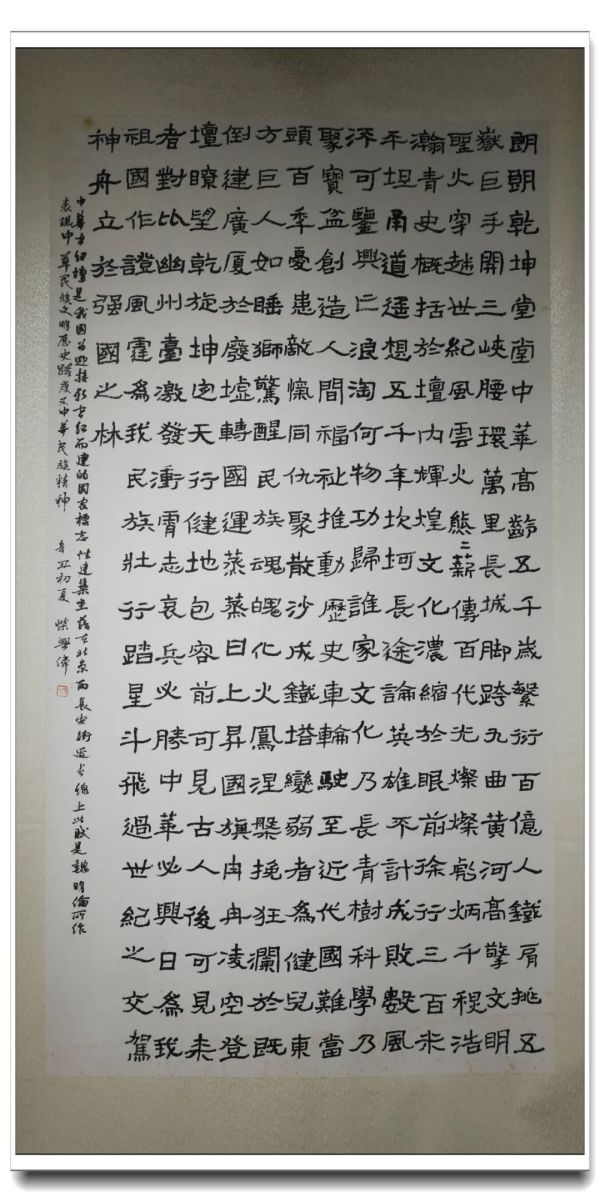 朗朗乾坤堂堂中華高齡五千歲繁衍百億人鐵肩挑五
嶽巨手開三峽腰環萬里長城脚跨九曲黃河高擎文明
聖火穿越世紀風雲火熊二薪傳百代光燦燦彪炳千秋浩
瀚青史概括於壇內輝煌文化濃縮於眼前徐行三百米
平坦甬道遥想五千年坎坷長途論英雄不計成敗數風
流可鑒興亡浪淘何物功歸誰家文化乃長青樹科學乃
聚寶盆創造人間福祉推動歷史車輪駛至近代國難當
頭百年憂患敵愾同仇聚散沙成鐵塔變弱者為健兒東
方巨人如睡獅驚醒民族魂魄化火鳳涅槃挽狂瀾於既
倒建廣厦於廢墟轉國運蒸蒸日上昇國旗冉冉凌空登
壇瞭望乾旋坤迴天行健地包容前可見古人後可見来
者對比幽州臺激發衝霄志哀兵必勝中華必興日為我
祖國作證風霆為我民族壯行踏星斗飛過世紀之交駕
神舟立於强國之林
中華世紀壇是我國為迎接新世紀而建的國家標志性建築坐落在北京西長安街延長線上此賦是魏明倫所作
表現中華民族文明歷史跨度及中華民族精神 辛丑初夏 柴興偉